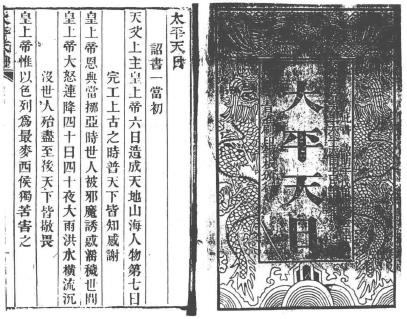 太平天日
太平天日
詔書一當初
天父上主皇上帝六日造成天地山海人物第七日
完工上古之時普天下皆知感謝
皇上帝恩典當挪亞時世人被邪魔誘惑溷穢世間
皇上帝大怒連降四十日四十夜大雨洪水橫流沉
沒世人殆盡至後天下皆敬畏
皇上帝惟以色列爲最麥西侯獨苦害之